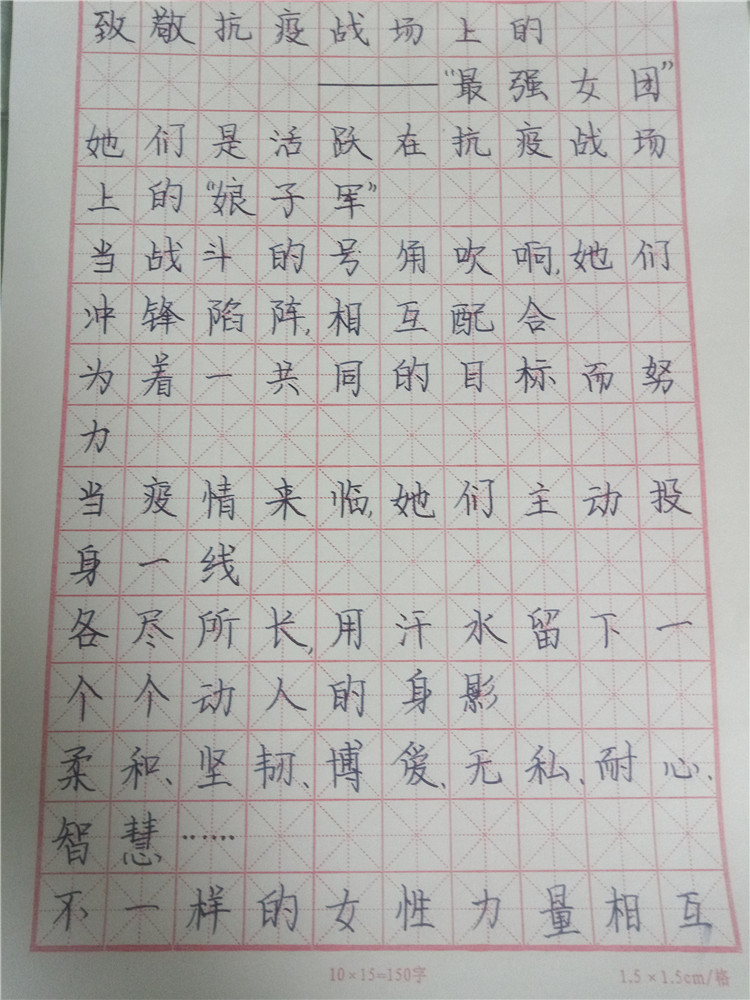 致敬抗疫战场上的
——“最强女团”
她们是活跃在抗疫战场
上的“娘子军”
当战斗的号角吹响,她们
冲锋陷阵,相互配合
为着一共同的目标而努
力
当疫情来临,她们主动投
身一线
各尽所长,用汗水留下一
个个动人的身影
柔和、坚韧、博爱、无私、耐心、
智慧……
不一样的女性力量相互
10×15=150字
1.5×1.5cm/格